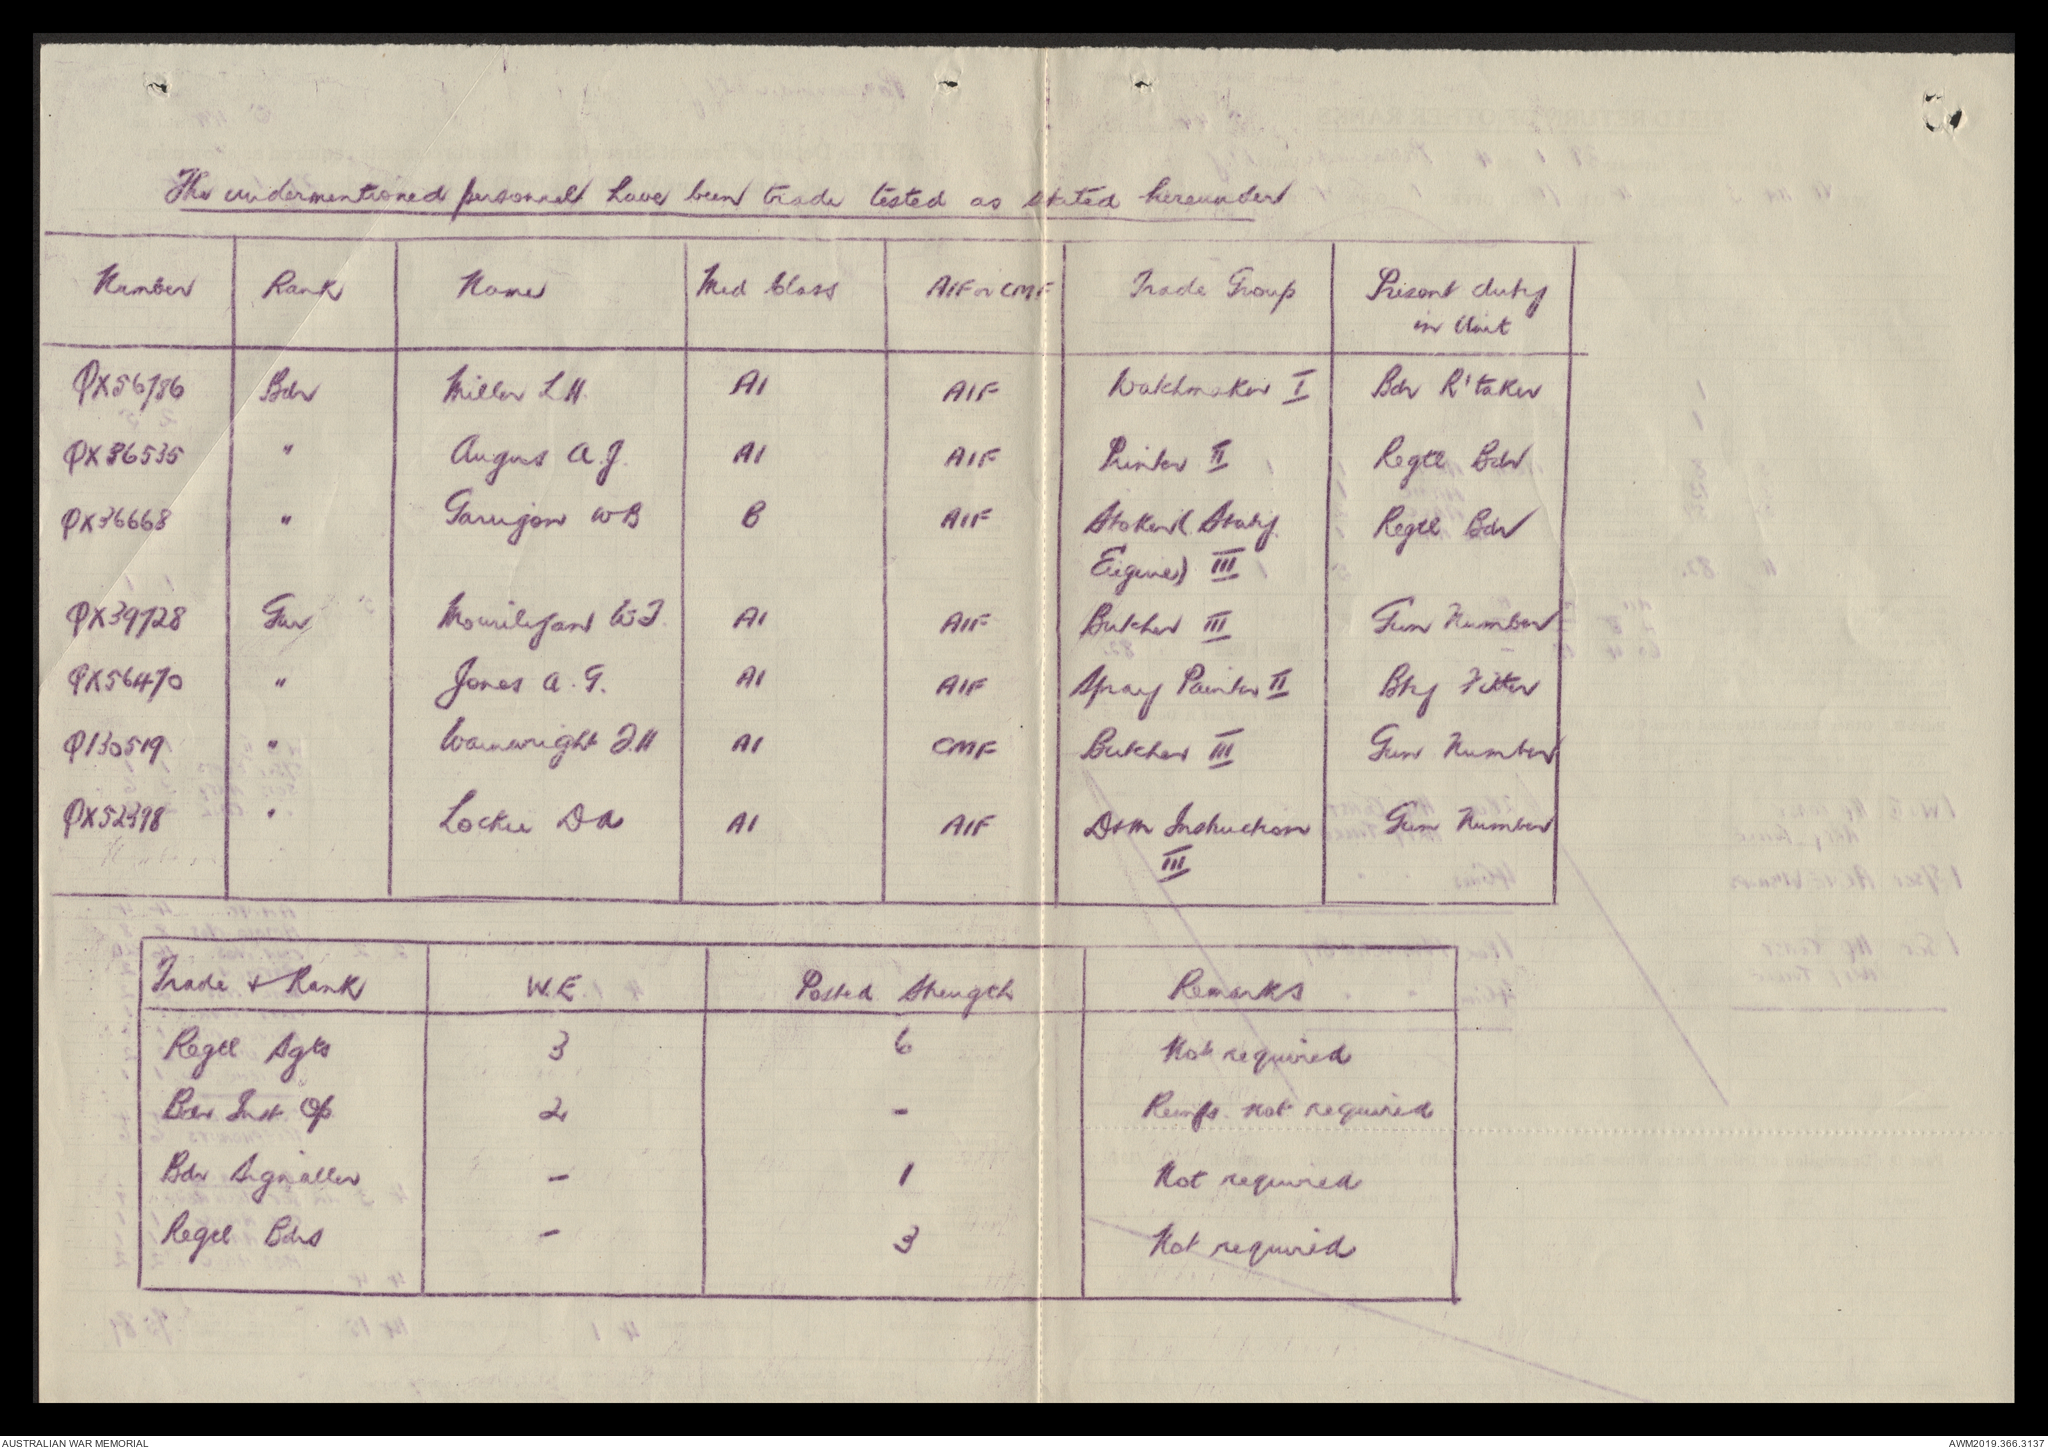 The undermentioned personnel have been trade tested as stated hereunder
Number Rank Name Med Class AIF or CMF Trade Group Present duty
in Unit
QX56786 Bdr Miller L.H. A1 AIF Watchmaker I Bdr R'taker
QX36535 " Angus A.J. A1 AIF Printer II Regtl Bdr
QX36668 " W B B AIF Stoker (Staty. Regtl Bdr
Engines) III
QX39728 Gnr A1 AIF Butcher III Gun Number
QX56470 " Jones A.G. A1 AIF Spray Painter II Bty Fitter
Q130519 " Wainwright J.H A1 CMF Butcher III Gun Number
QX52398 " Lockie D A A1 AIF Instruction Gun Number
III
Trade & Rank W.E. Posted Strength Remarks
Regtl Sgts 3 6 Not required
Bdr Inst. Op 2 - Reinfs. not required
Bdr Signaller - 1 Not required
Regtl Bdrs - 3 Not required
AUSTRALIAN WAR MEMORIAL AWM2019.366.3137